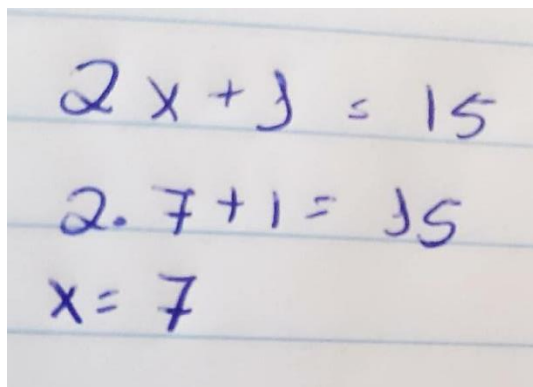 2x+1 = 15
2. 7+1= 15
x= 7